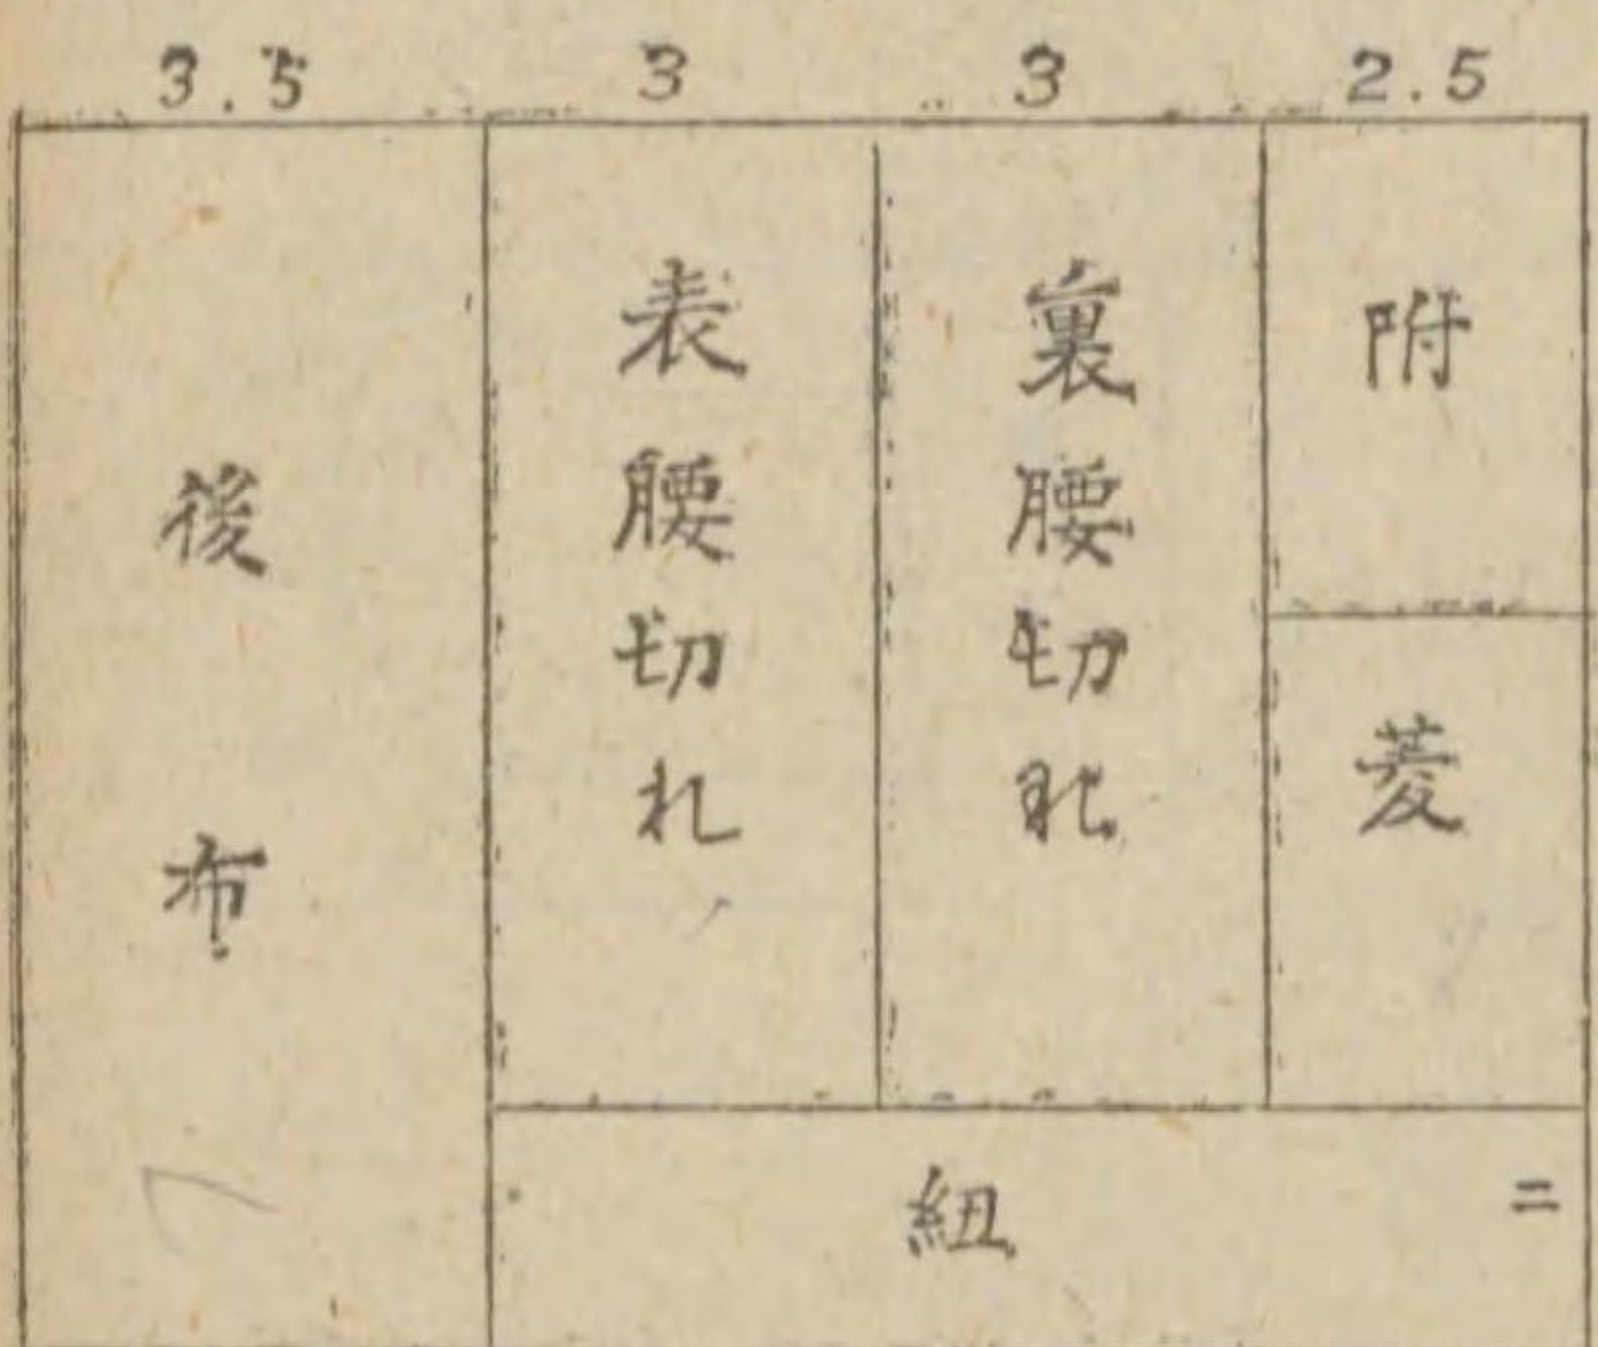 3.5 3 3 2.5
後布
表腰切れ
裏腰切れ
附
菱
紐
二